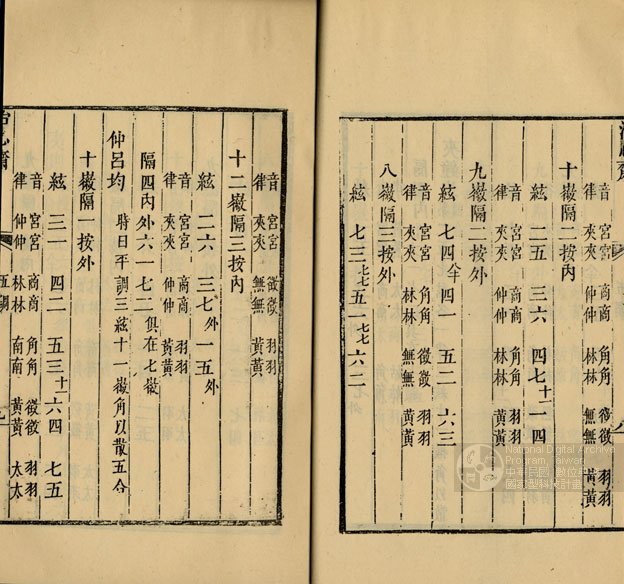 音 宮宮 商商 角角 徵徵 羽羽
律 夾夾 仲仲 林林 無無 黃黃
十徽隔二按內
絃 二五 三六 四七十一 一四
音 宮宮 商商 角角 羽羽
律 夾夾 仲仲 林林 黃黃
九徽隔二按外
絃 七四八半 四一 五二 六三
音 宮宮 角角 徵徵 羽羽
律 夾夾 林林 無無 黃黃
八徽隔三按外
絃 七三七七 五一七七 六二
音 宮宮 徵徵 羽羽
律 夾夾 無無 黃黃
十二徽隔三按內
絃 二六 三七外 一五外
音 宮宮 商商 羽羽
律 夾夾 仲仲 黃黃
隔四內外六一七二俱在七徽
仲呂均 時曰平調三絃十一徽角以散五合
十徽隔一按外
音 宮宮 商商 角角 徵徵 羽羽
律 仲仲 林林 南南 黃黃 太太
絃 三一 四二 五三十一 六四 七五
五調
National Digital Archives
Program, Taiwan